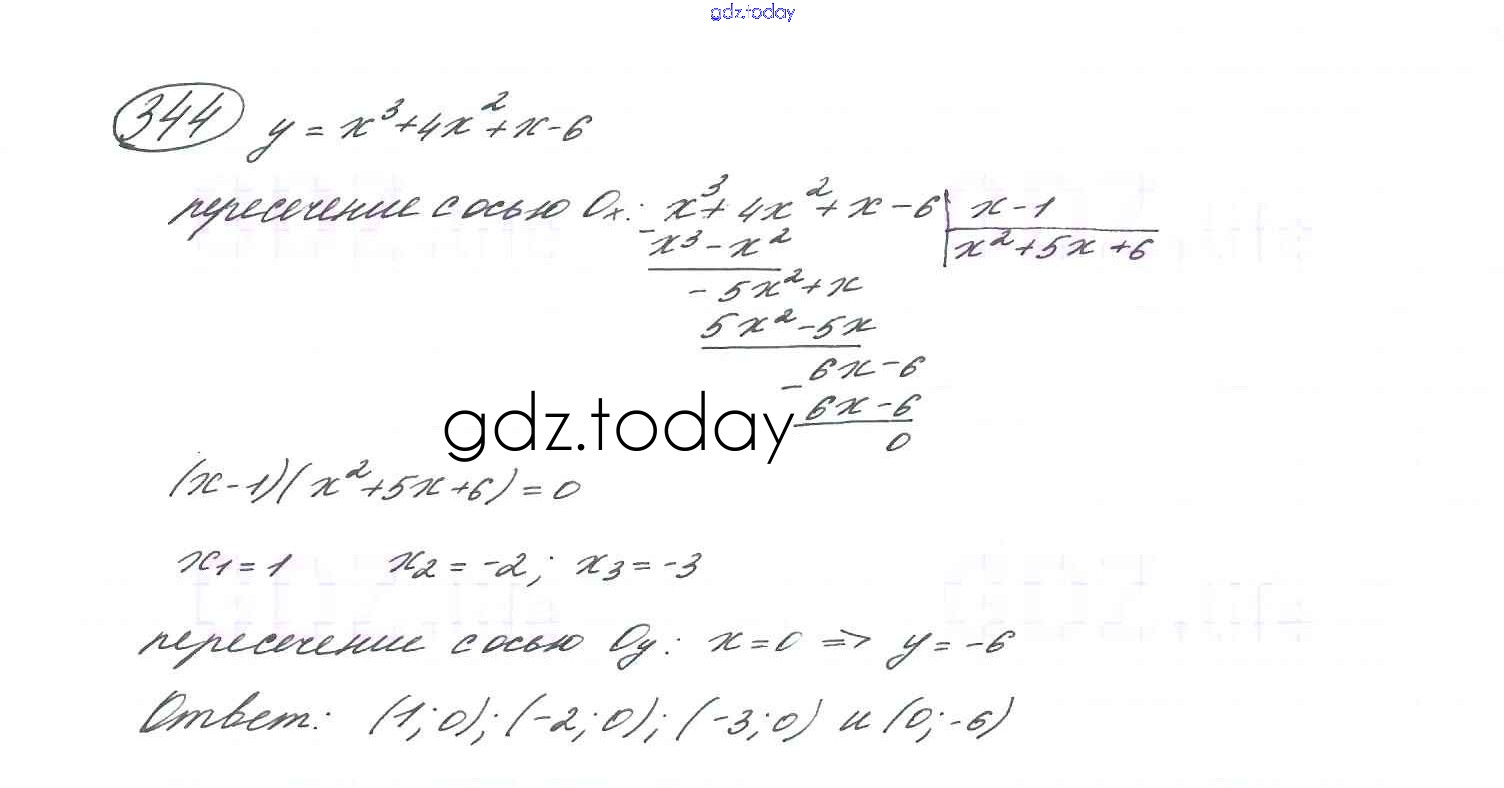 gdz.today
344 y = x³+4x²+x-6
пересечение с осью Ox: x³+4x²+x-6 | x-1
- x³-x² x²+5x+6
- 5x²+x
5x²-5x
- 6x-6
gdz.today 6x-6
0
(x-1)(x²+5x+6)=0
x₁=1 x₂=-2; x₃=-3
пересечение с осью Oy: x=0 => y=-6
Ответ: (1;0); (-2;0); (-3;0) и (0;-6)